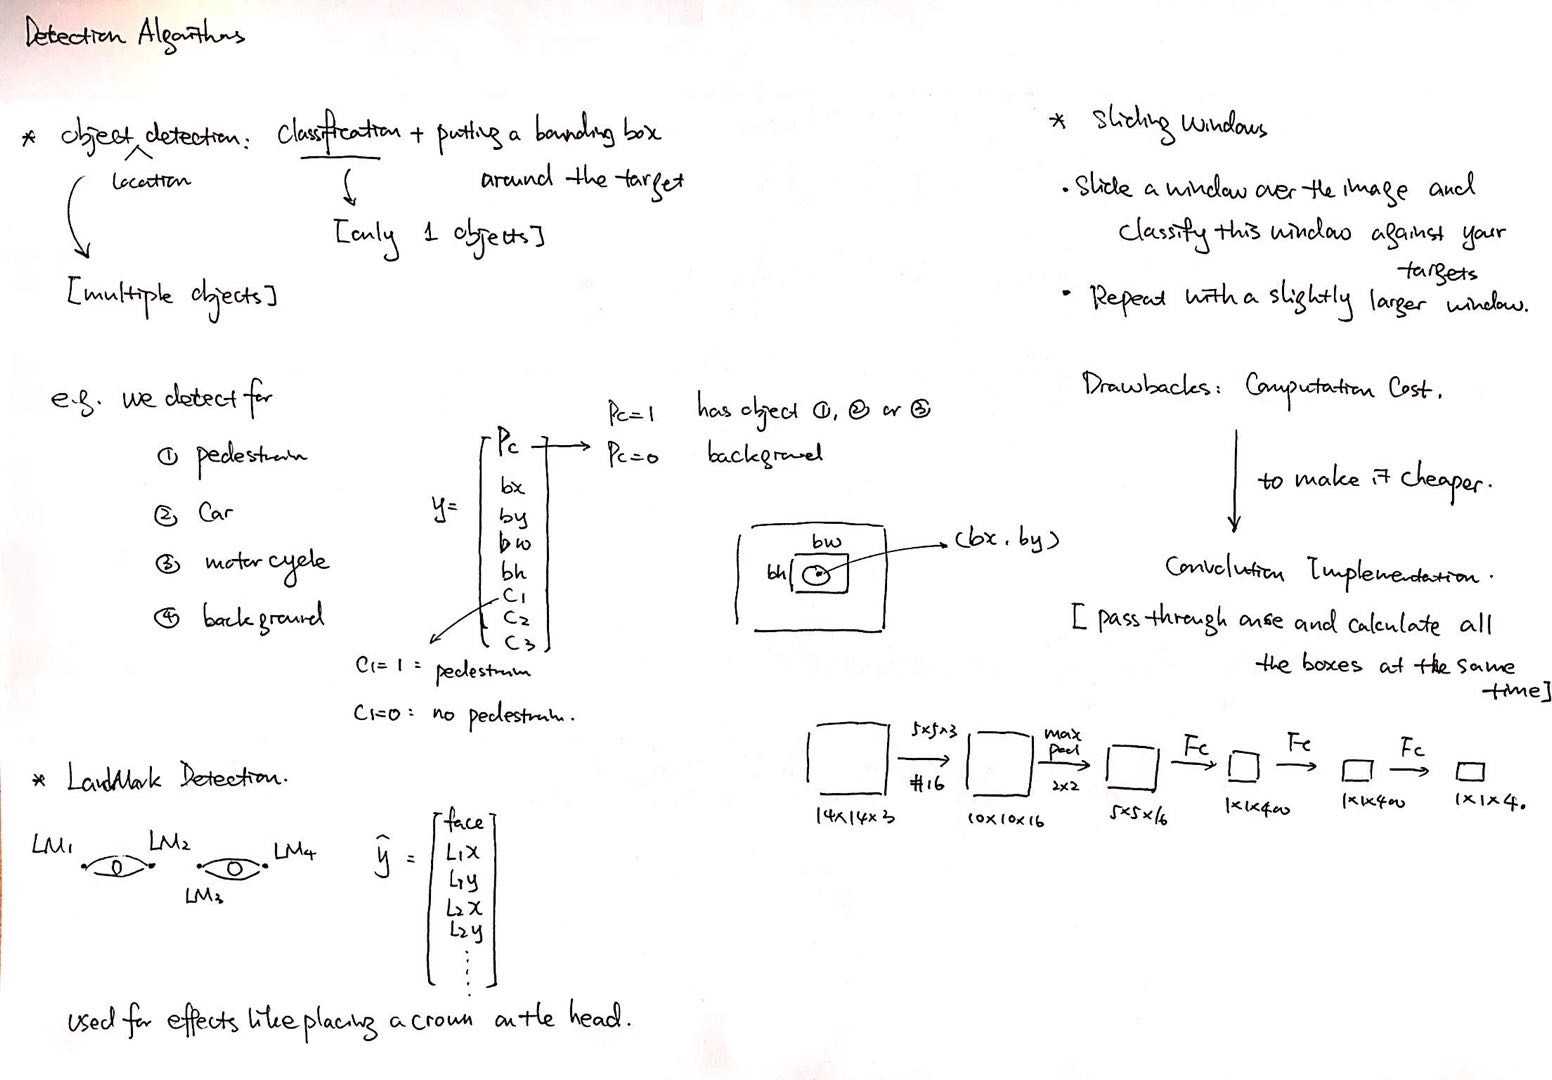 Detection Algorithms
* object detection: classification + putting a bounding box
location
around the target
[only 1 objects]
[multiple objects]
e.g. we detect for
① pedestrain
② Car
③ motorcycle
④ background
y=
Pc
bx
by
bw
bh
C1
C2
C3
Pc=1 has object ①, ② or ③
Pc=0 background
C1=1: pedestrain
C1=0: no pedestrain.
bw
bh
(bx, by)
* LandMark Detection.
LM1
LM2
LM3
LM4
ŷ =
face
L1x
L1y
L2x
L2y
⋮
used for effects like placing a crown on the head.
* Sliding Windows
• Slide a window over the image and
classify this window against your
targets
• Repeat with a slightly larger window.
Drawbacks: Computation Cost.
to make it cheaper.
Convolution Implementation.
[pass through once and calculate all
the boxes at the same
time]
14x14x3
5x5x3
#16
10x10x16
max
pool
2x2
5x5x16
Fc
1x1x400
Fc
1x1x400
Fc
1x1x4.